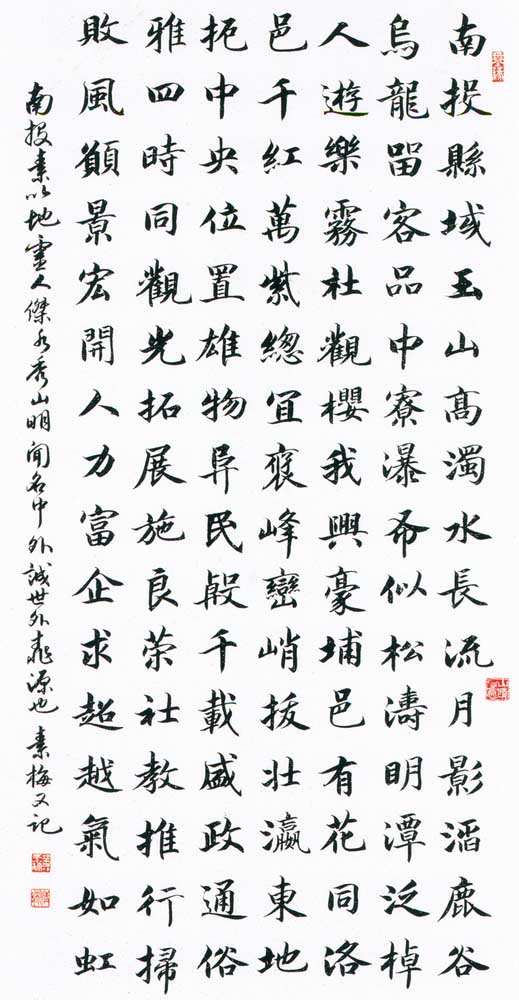 南投縣域玉山高濁水長流月影滔鹿谷
烏龍留客品中寮瀑布似松濤明潭泛棹
人遊樂霧社觀櫻我興豪埔邑有花同洛
邑千紅萬紫總宜褒峰巒峭拔壯瀛東地
扼中央位置雄物阜民殷千載盛政通俗
雅四時同觀光拓展施良策社教推行掃
敗風願景宏開人力富企求超越氣如虹
南投素以地靈人傑水秀山明聞名中外誠世外桃源也 素梅又記